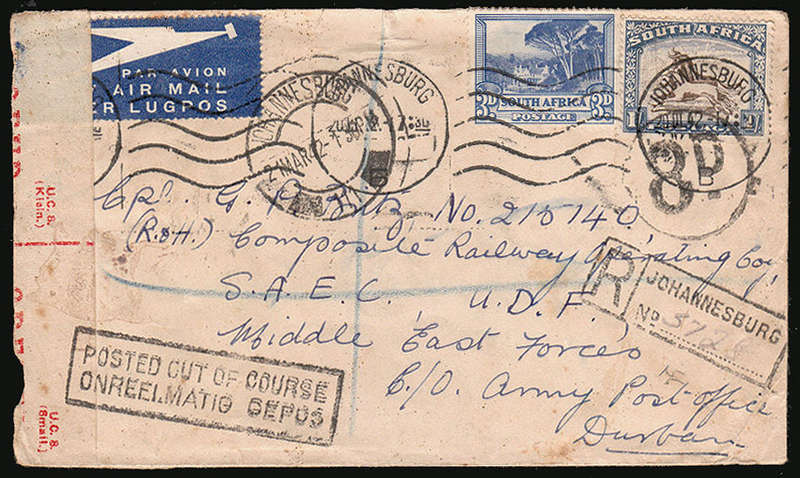 PAR AVION
AIR MAIL
ER LUGPOS
SOUTH AFRICA
3D 3D
POSTAGE
SOUTH AFRICA
1/- 1/-
JOHANNESBURG
21 MAR 42
JOHANNESBURG
6
JOHANNESBURG
20 III 42
B
8D
U.C. 8.
(Klein.)
Cpl. G. No. 215140
(R&H.) Composite Railway Operating Coy,
S.A.E.C. U.D.F.
Middle East Forces
C/O. Army Post office
Durban
R
JOHANNESBURG
No 372
POSTED OUT OF COURSE
ONREELMATIG GEPOS
U.C. 8.
(Small.)